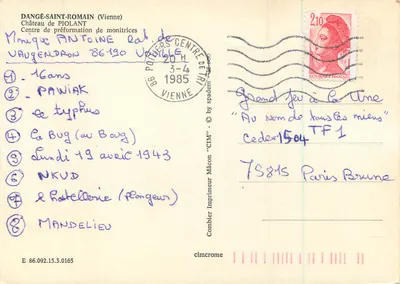 DANGÉ-SAINT-ROMAIN (Vienne)
Château de PIOLANT
Centre de préformation de monitrices
Monique ANTOINE
VAUGENDRON 86190 VOUILLÉ
① 16ans
② PAWIAK
③ Le typhus
④ Le Bug (ou Boug)
⑤ Lundi 19 avril 1943
⑥ NKVD
⑦ l'hostellerie (Plongeur)
⑧ MANDELIEU
E 86.092.15.3.0165
cimcrome
Combier Imprimeur Mâcon "CIM" - © by
86 POITIERS CENTRE DE TRI
20 H
3-4
1985
VIENNE
2,10
Grand Jeu à La Une
"Au nom de tous les miens"
TF1
Cedex 1504
75815 Paris Brune